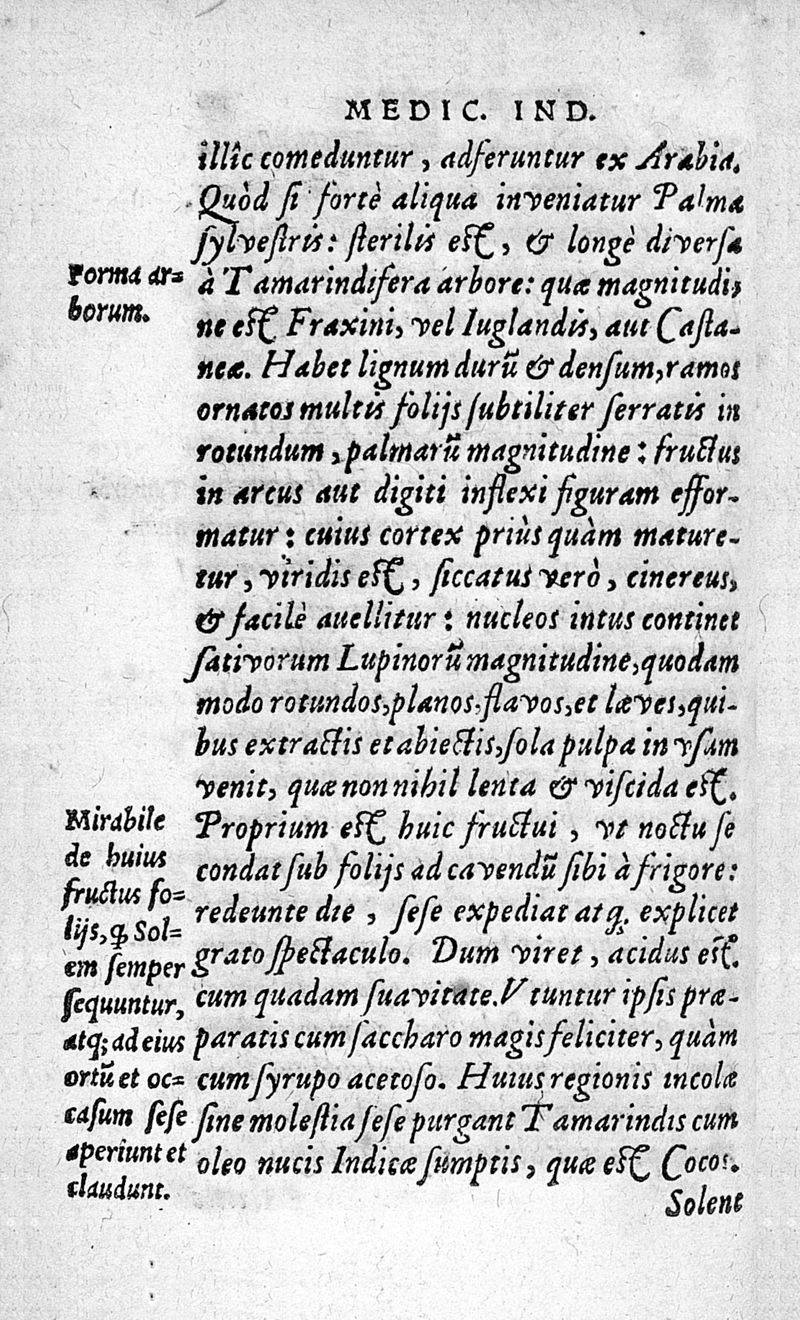 MEDIC. IND.
illîc comeduntur, adferuntur ex Arabia.
Quòd si fortè aliqua inveniatur Palma
sylvestris: sterilis est, & longè diversa
à Tamarindifera arbore: quæ magnitudi,
ne est Fraxini, vel Iuglandis, aut Casta-
neæ. Habet lignum durũ & densum, ramos
ornatos multis folijs subtiliter serratis in
rotundum, palmarũ magnitudine: fructus
in arcus aut digiti inflexi figuram effor-
matur: cuius cortex priùs quàm mature-
tur, viridis est, siccatus verò, cinereus,
& facilè auellitur: nucleos intus continet
sativorum Lupinorũ magnitudine, quodam
modo rotundos, planos, flavos, et læves, qui-
bus extractis et abiectis, sola pulpa in vsum
venit, quæ non nihil lenta & viscida est.
Proprium est huic fructui, vt noctu se
condat sub folijs ad cavendũ sibi à frigore:
redeunte die, sese expediat atq; explicet
grato spectaculo. Dum viret, acidus est.
cum quadam suavitate. Vtuntur ipsis præ-
paratis cum saccharo magis feliciter, quàm
cum syrupo acetoso. Huius regionis incolæ
sine molestia sese purgant Tamarindis cum
oleo nucis Indicæ sumptis, quæ est Cocos.
Solent
Forma ar=
borum.
Mirabile
de huius
fructus fo=
lijs, ꝙ Sol=
em semper
sequuntur,
atq; ad eius
ortũ et oc=
casum sese
aperiunt et
claudunt.